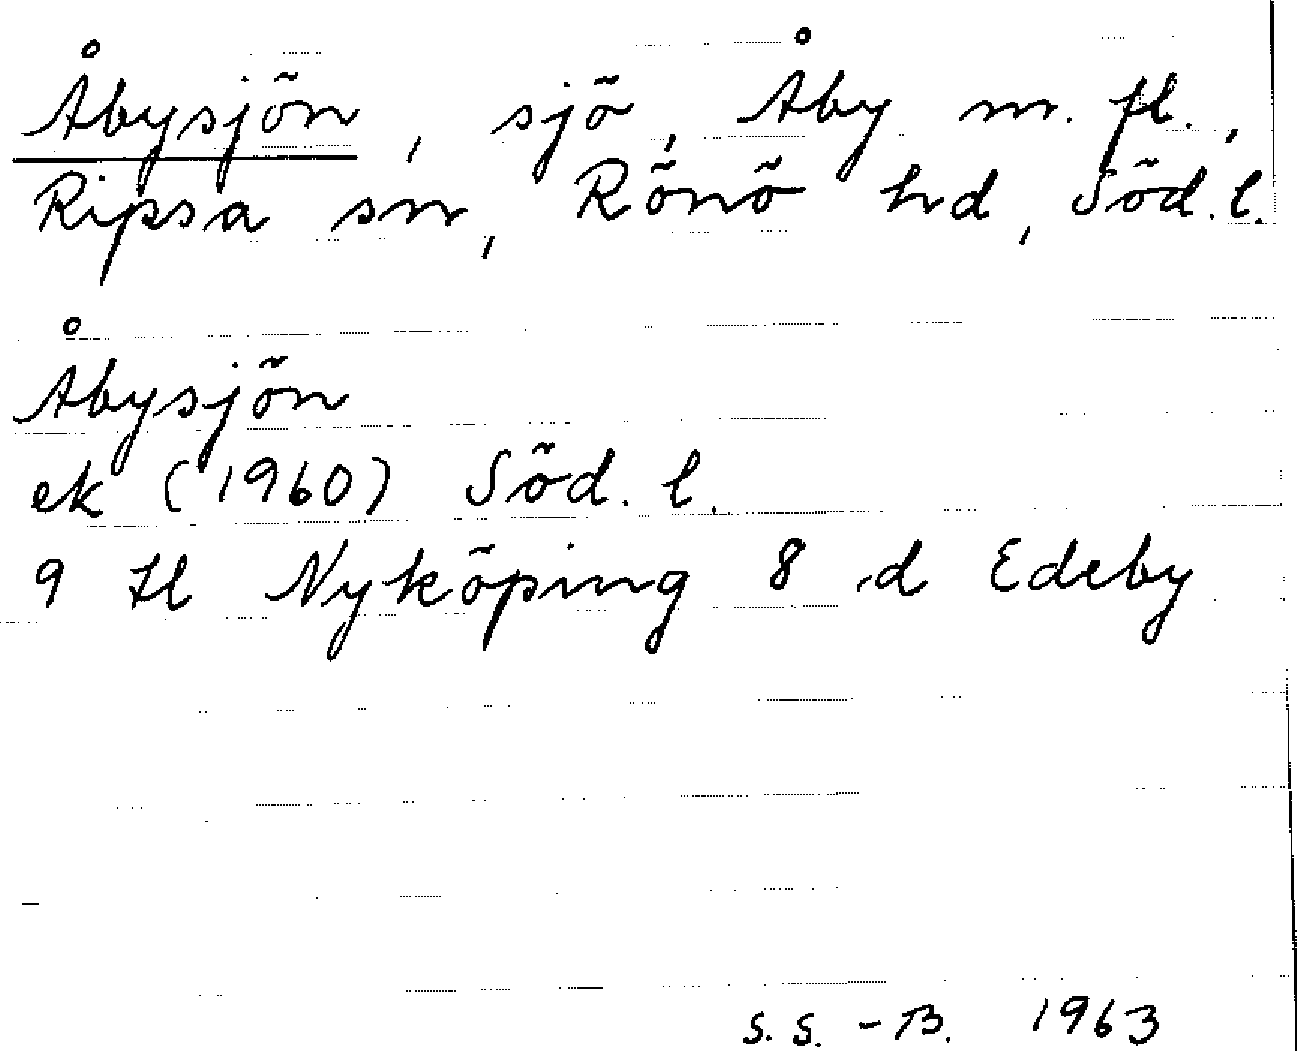 Åbysjön, sjö, Åby m. fl.,
Ripsa sn, Rönö hd, Söd. l.
Åbysjön
ek (1960) Söd. l.
9 H Nyköping 8 d Edeby
S. S. - B. 1963